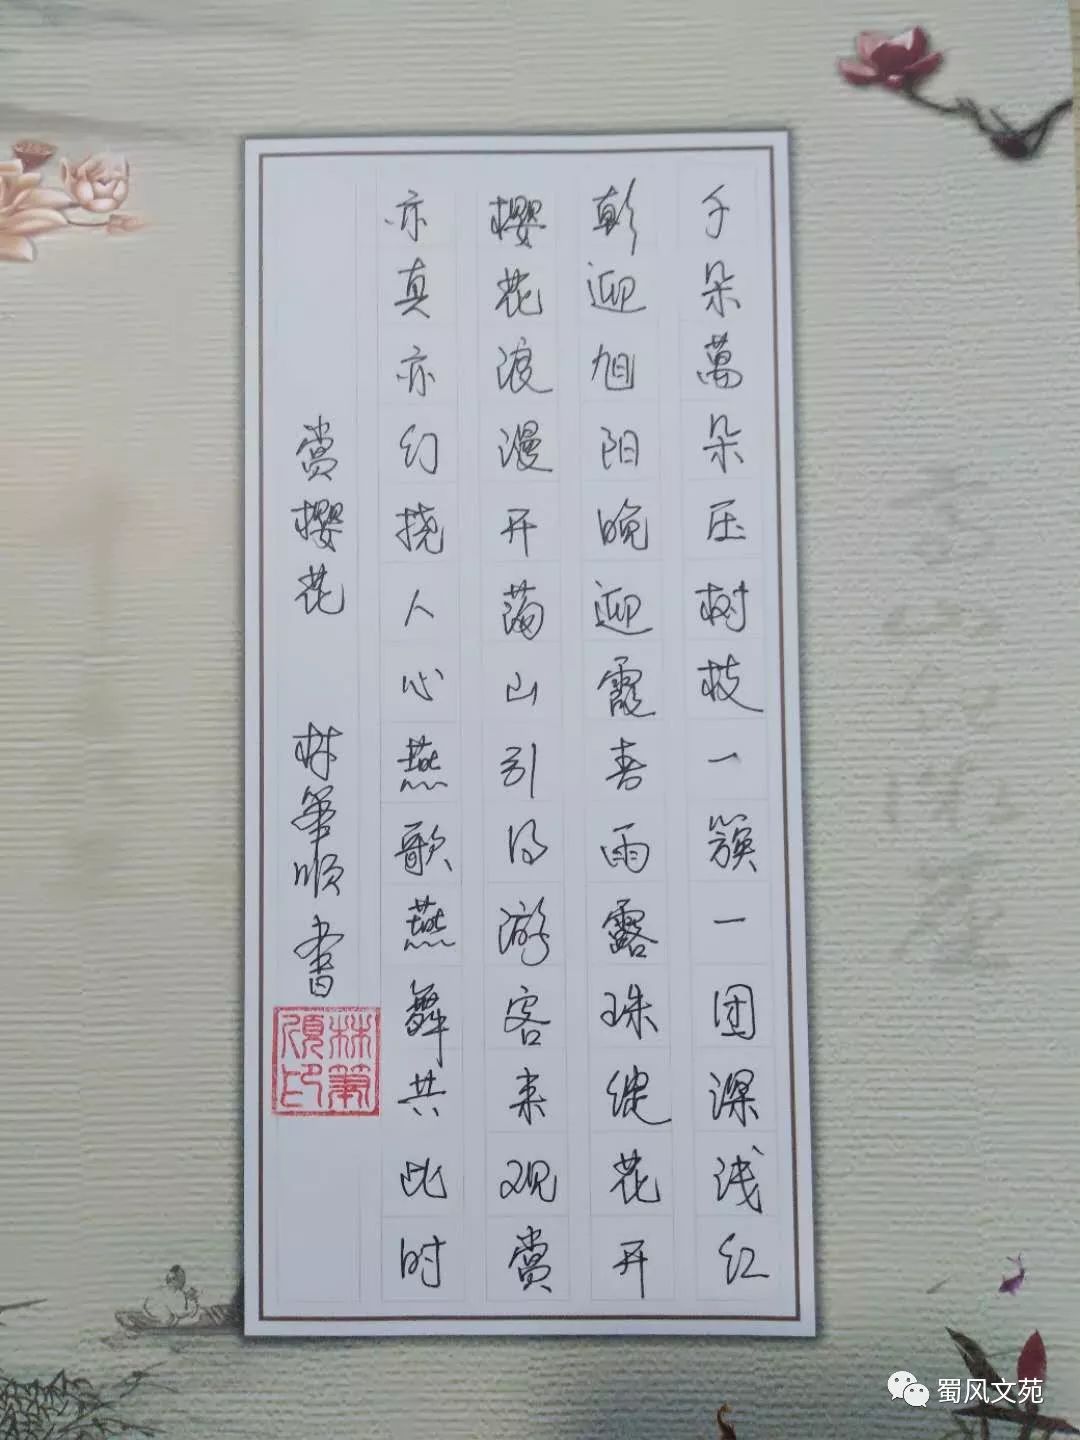 千朵萬朵压树枝一簇一团深浅红
朝迎旭阳晚迎霞喜雨露珠绽花开
樱花浪漫开满山引得游客来观赏
亦真亦幻挠人心燕歌燕舞共此时
赏樱花 林顺书
蜀风文苑